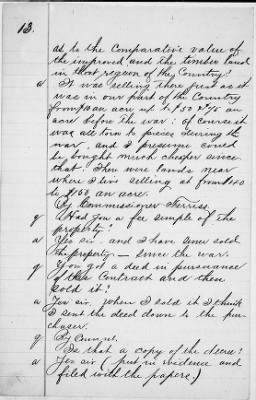 13.
as to the Comparative value of
the improved and the timber land
in that region of the Country?
a It was selling there just as it
was in our part of the Country
from $10 an acre up to $50 & 75 an
acre before the war: of course it
was all torn to pieces during the
war, and I presume could
be bought much cheaper since
that. There were lands near
where I live selling at from
to $150 an acre.
By Commissioner Ferriss.
q Had you a fee simple of the
property?
a Yes sir, and I have since sold
the property — since the war.
q You got a deed in pursuance
of this Contract and then
sold it?
a Yes sir. When I sold it I think
I sent the deed down to the pur-
chaser.
q By Counsel.
Is that a copy of the decree?
a Yes sir (put in evidence and
filed with the papers.)